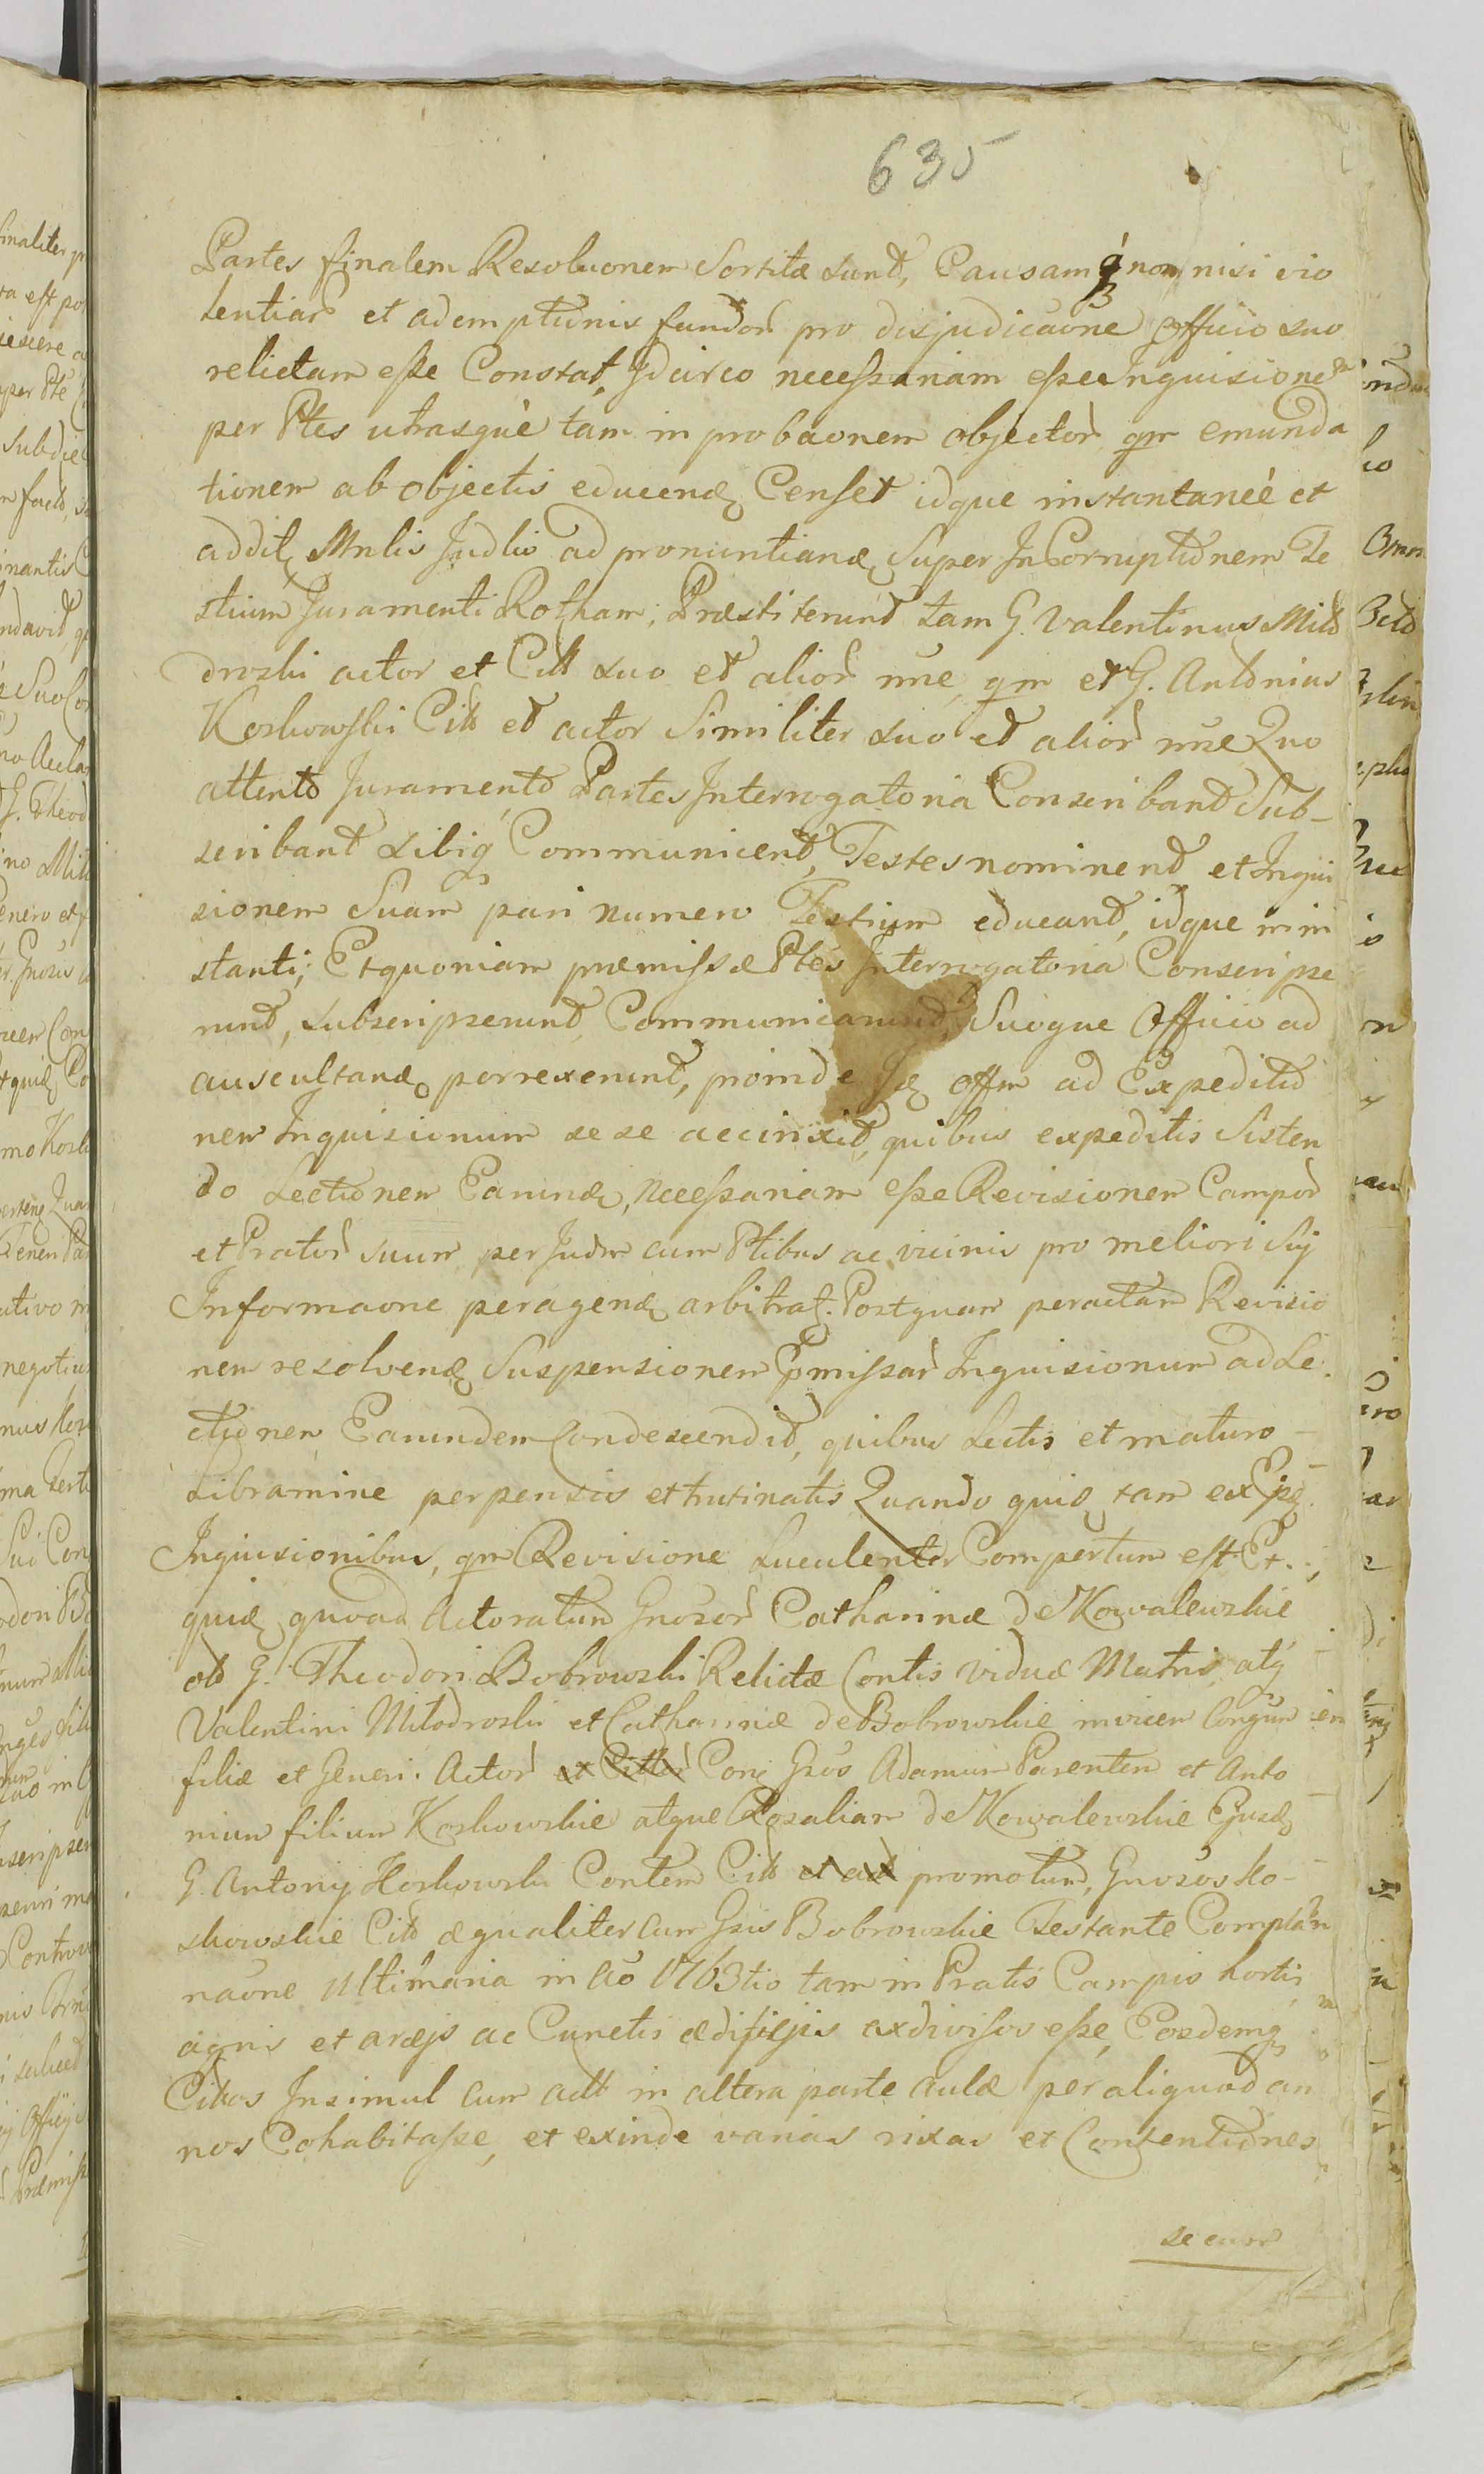 635
Partes finalem Resolvonem Sortitæ sunt, Causamq́ non nisi vio
lentiar et ademptionis fundor pro disjudicaone officio suo
relictam esse Constat, Idcirco necessariam esse Inquisionem
per Ptes utrasque tam in probaonem objector qm emunda
tionem ab objectis educend Censet idque instantanée et
addit Mnlis Judlis ad pronuntiand Super InCorruptionem Te
stium Juramenti Rotham; Præstiterunt tam G. Valentinus Mito
droski actor et Citt suo et alior nne qm et G. Antonius
Koskowski Citt et actor Similiter suo et alior nne Quo
attento Juramento Partes Interrogatoria Conscribant Sub-
scribant sibiq Communicent, Testes nominent et Inqui
sionem Suam pari numero Testium educant, idque in in
stanti; Et quoniam præmissæ Ptes Interrogatoria Conscripse
runt, subscripserunt, Communicarunt, Suoque Officio ad
auscultand porrexerunt, proinde Id offm ad Expeditio
nem Inquisionum sese accinxit, quibus expeditis Sisten
do Lectionem Earund, necessariam esse Revisionem Campor
et Prator suum per Judm cum Ptibus ac vicinis pro meliori Sui
Informaone peragend arbitrat. Postquam peractam Revisio
nem resolvend Suspensionem Præmissar Inquisionum ad Le
ctionem Earundem Condescendit, quibus Lectis et maturo -
Libramine perpensis et trutinatis Quando quid tam ex Ejsd
Inquisionibus, qm Revisione Luculenter Compertum est Et.
quid quoad Actoratum Gnosor Catharinæ de Kowalewskie
olo G. Theodori Bobrowski Relictæ Contis Viduæ Matris atq́
Valentini Mitodroski et Catharinæ de Bobrowskie invicem Congum
filiæ et Generi. Actor et Cittor Con Gsos Adamum Parentem et Anto
nium filium Koskowskie atque Rosaliam de Kowalewskie Ejusd
G. Antonij Koskowski Contem Citt et act promotum, Gnosos Ko-
skowskie Citt æqualiter cum Gsis Bobrowskie Testante Complan
naone Ultimaria in Ao 1763tio tam in Pratis Campis hortis
agris et areis ac Cunctis ædificijis exdivisos esse, Eosdemq
Cittos Insimul cum actt in altera parte aulæ per aliquod an
nos Cohabitasse, et exinde varias rixas et Contentiones
secum